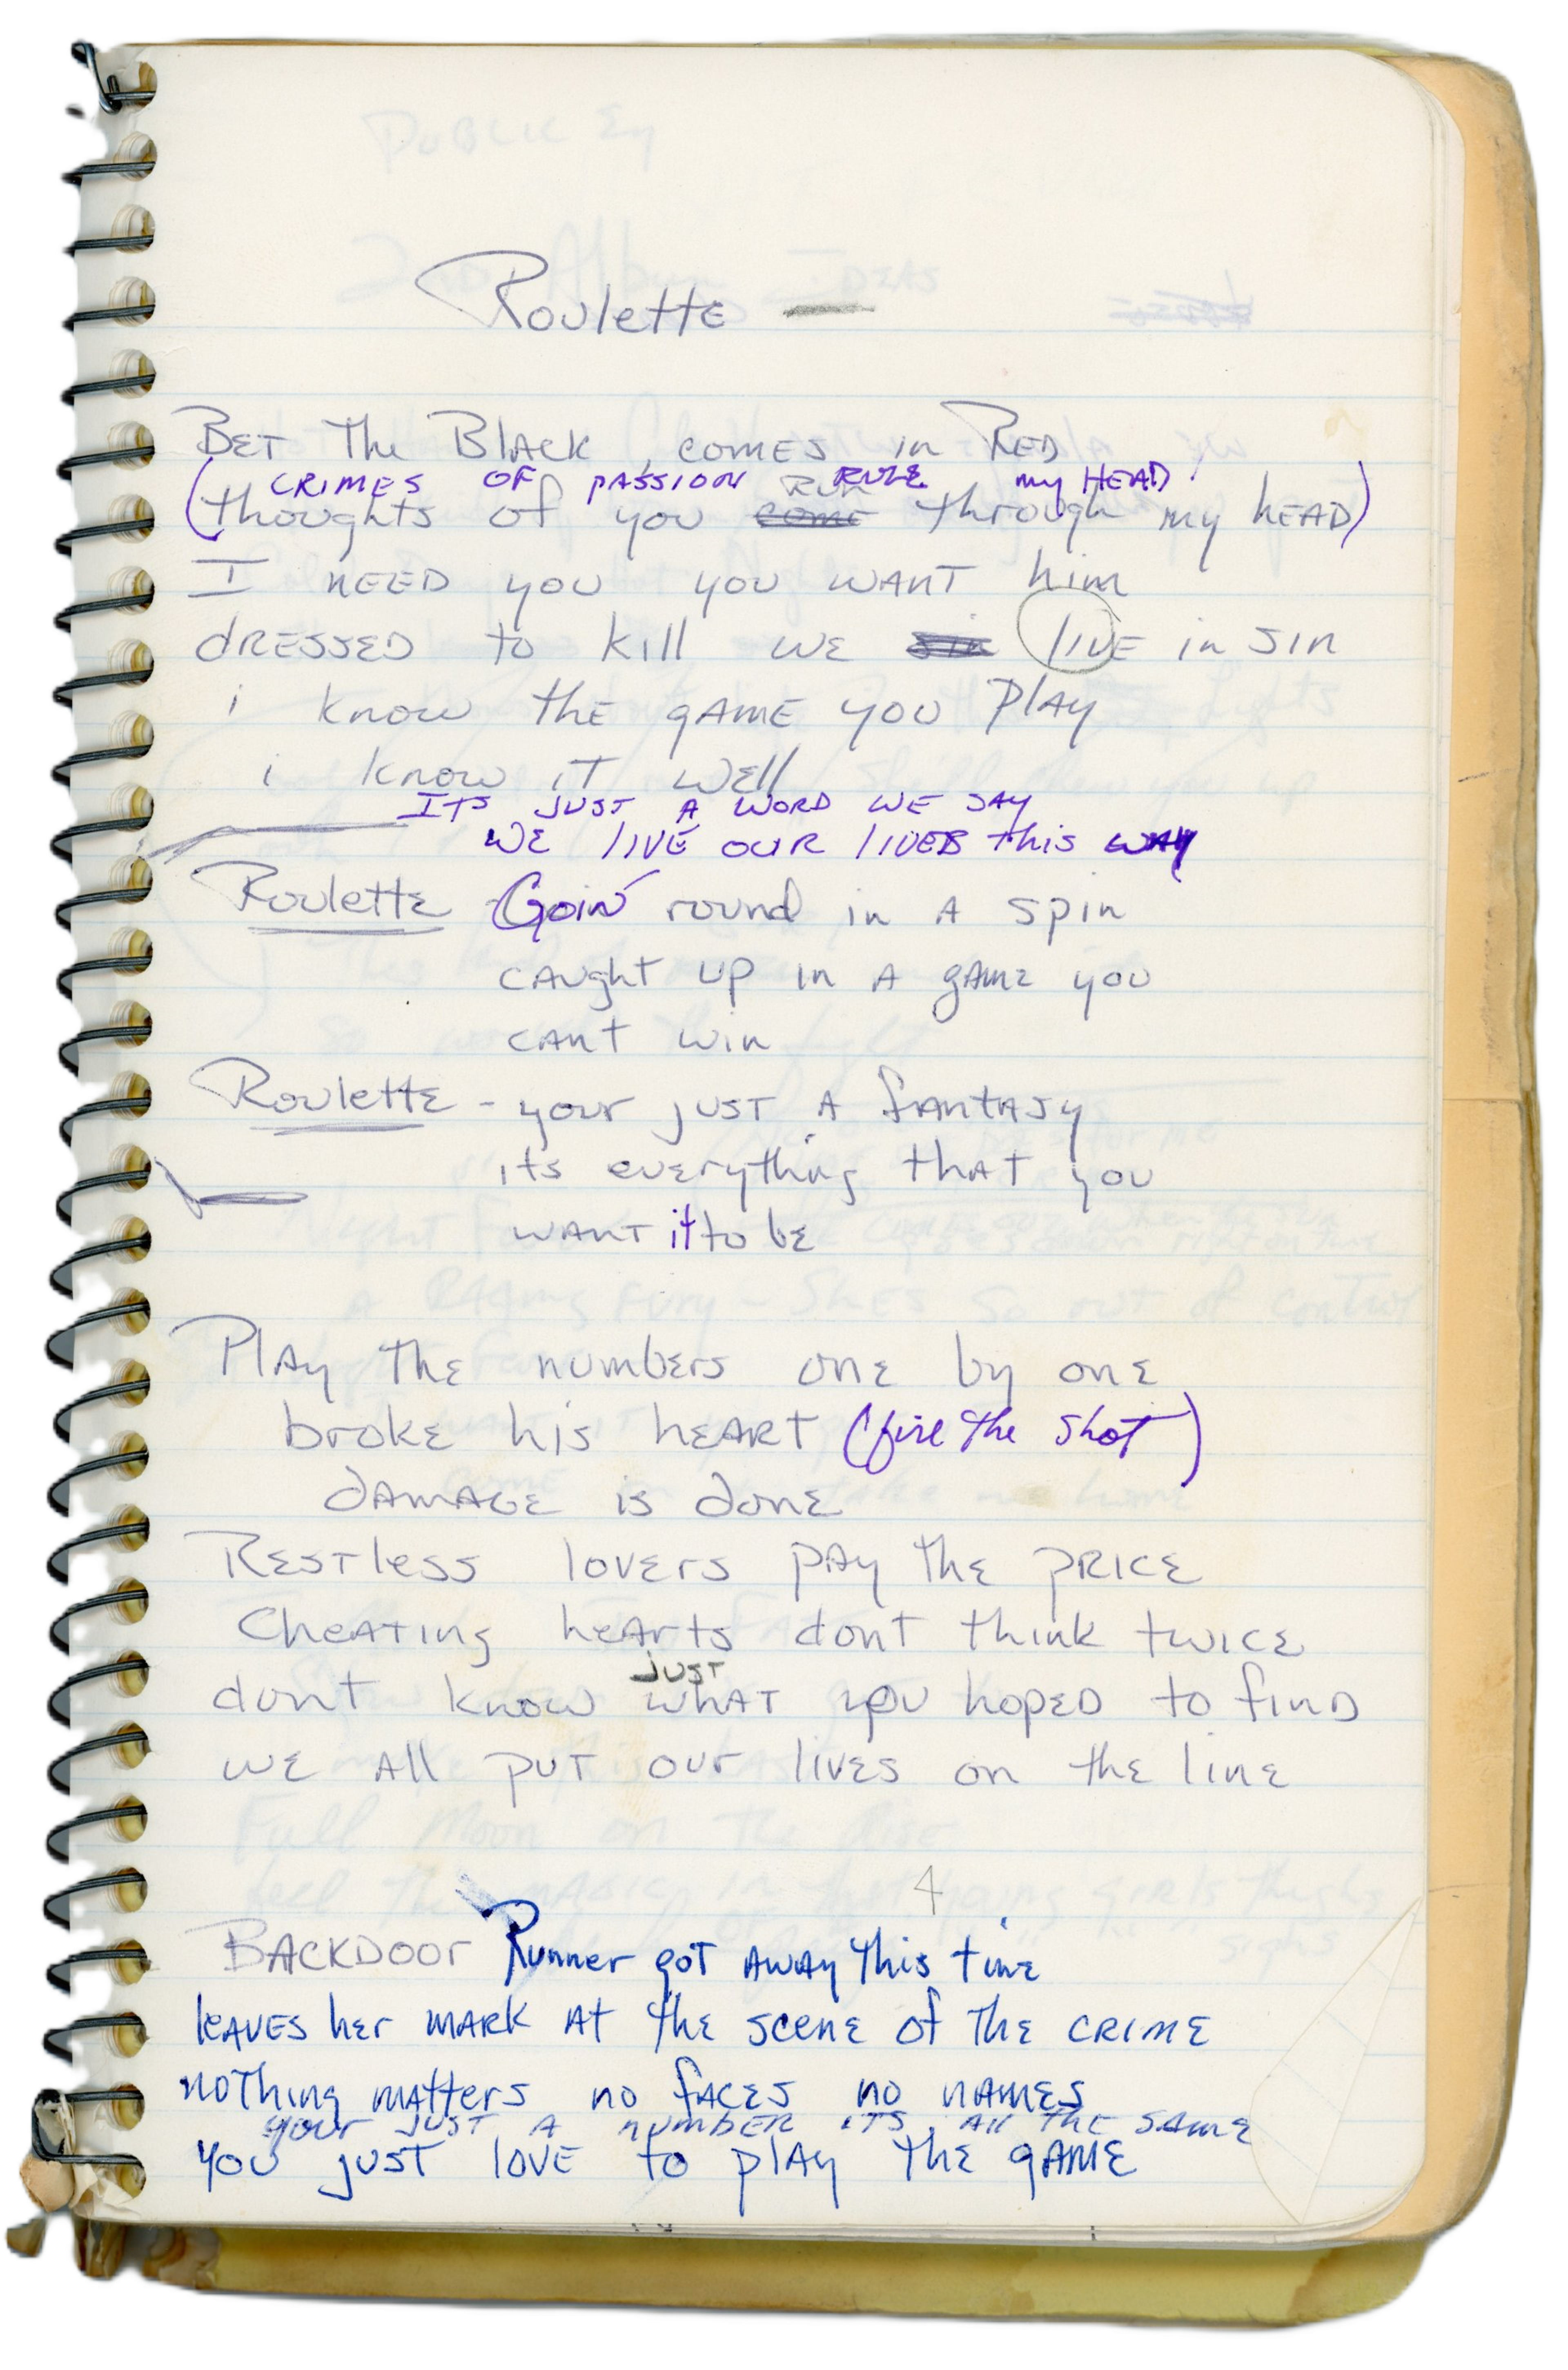 Roulette —
BET The Black, comes in RED
CRIMES OF PASSION RULE my HEAD
RUN
(thoughts of you come through my hEAD)
I NEED you you WANT him
dRESSED to kill we sin liVE in SIN
i know thE gAME you PlAy
i know IT WEll
ITS JUST A WORD WE SAY
WE lIVE OUR lIVES this WAY
Roulette Goin' round in A spin
cAught up in A gAME you
cAnt win
Roulette - your JUST A fANTASY
its everything thAT you
WANT it to bE
PlAy ThE numbErs onE by onE
brokE his hEART (fire The Shot)
dAMAGE is donE
RESTless lovErs pAy thE PRICE
ChEATing heArts donT think twicE
JUST
dont know whAT you hopED to finD
wE All puT our livEs on thE linE
4
BACKDOOR Runner goT AWAy This timE
leAVES hEr MARK AT ThE scenE of ThE CRIME
noThing mATTers no fACES no nAMES
your JUST A numbER ITS All THE SAME
You just lovE to plAy ThE gAME